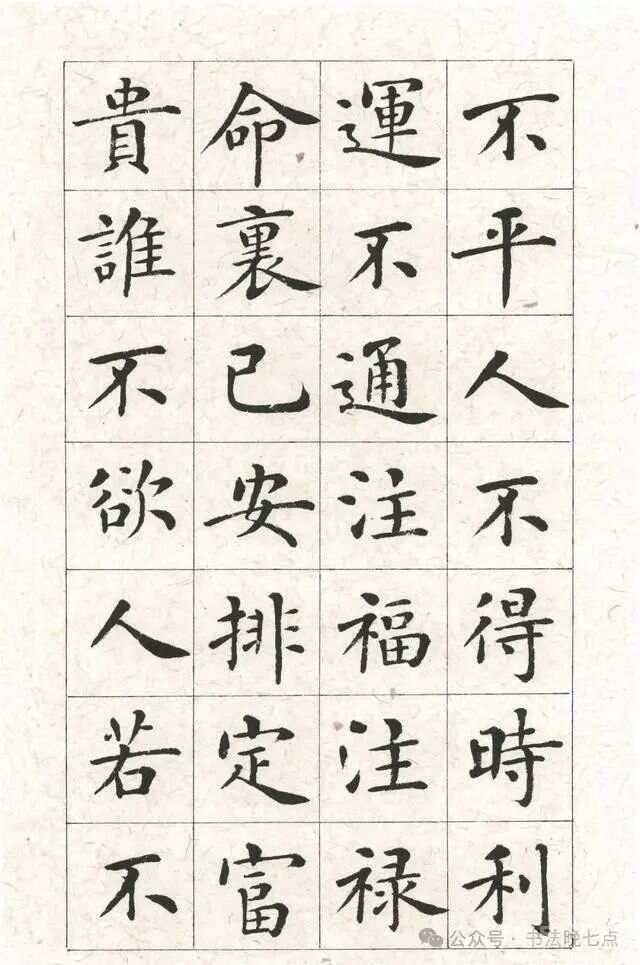 不平人不得時利
運不通注福注禄
命裏已安排定富
貴誰不欲人若不
公众号·书法晚七点